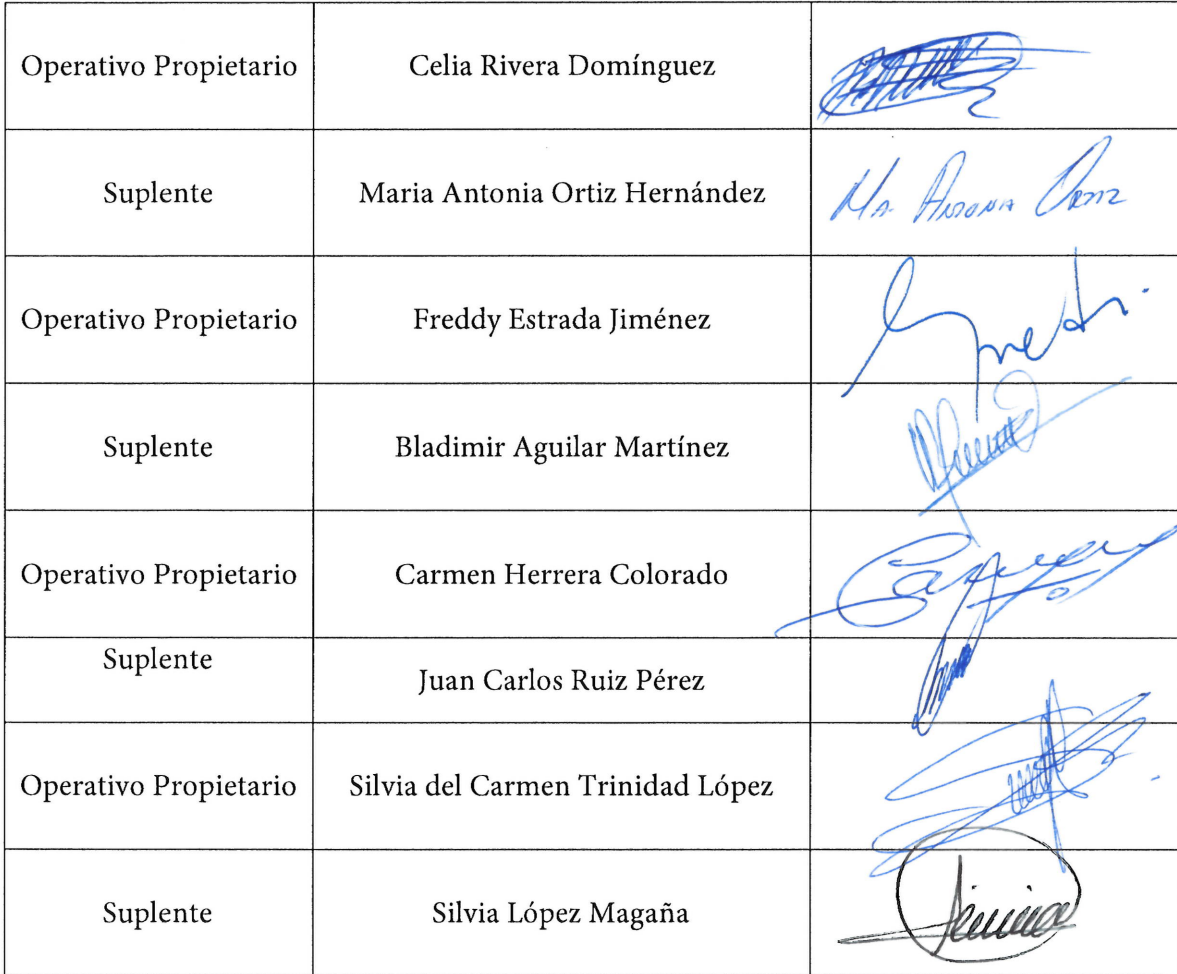 Operativo Propietario Celia Rivera Domínguez
Suplente Maria Antonia Ortiz Hernández Ma. Antonia Ortiz
Operativo Propietario Freddy Estrada Jiménez
Suplente Bladimir Aguilar Martínez
Operativo Propietario Carmen Herrera Colorado
Suplente Juan Carlos Ruiz Pérez
Operativo Propietario Silvia del Carmen Trinidad López
Suplente Silvia López Magaña